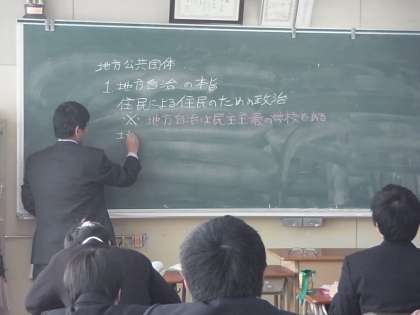 地方公共団体
1 地方自治の本旨
住民による住民のための政治
※ 地方自治は民主主義の学校である